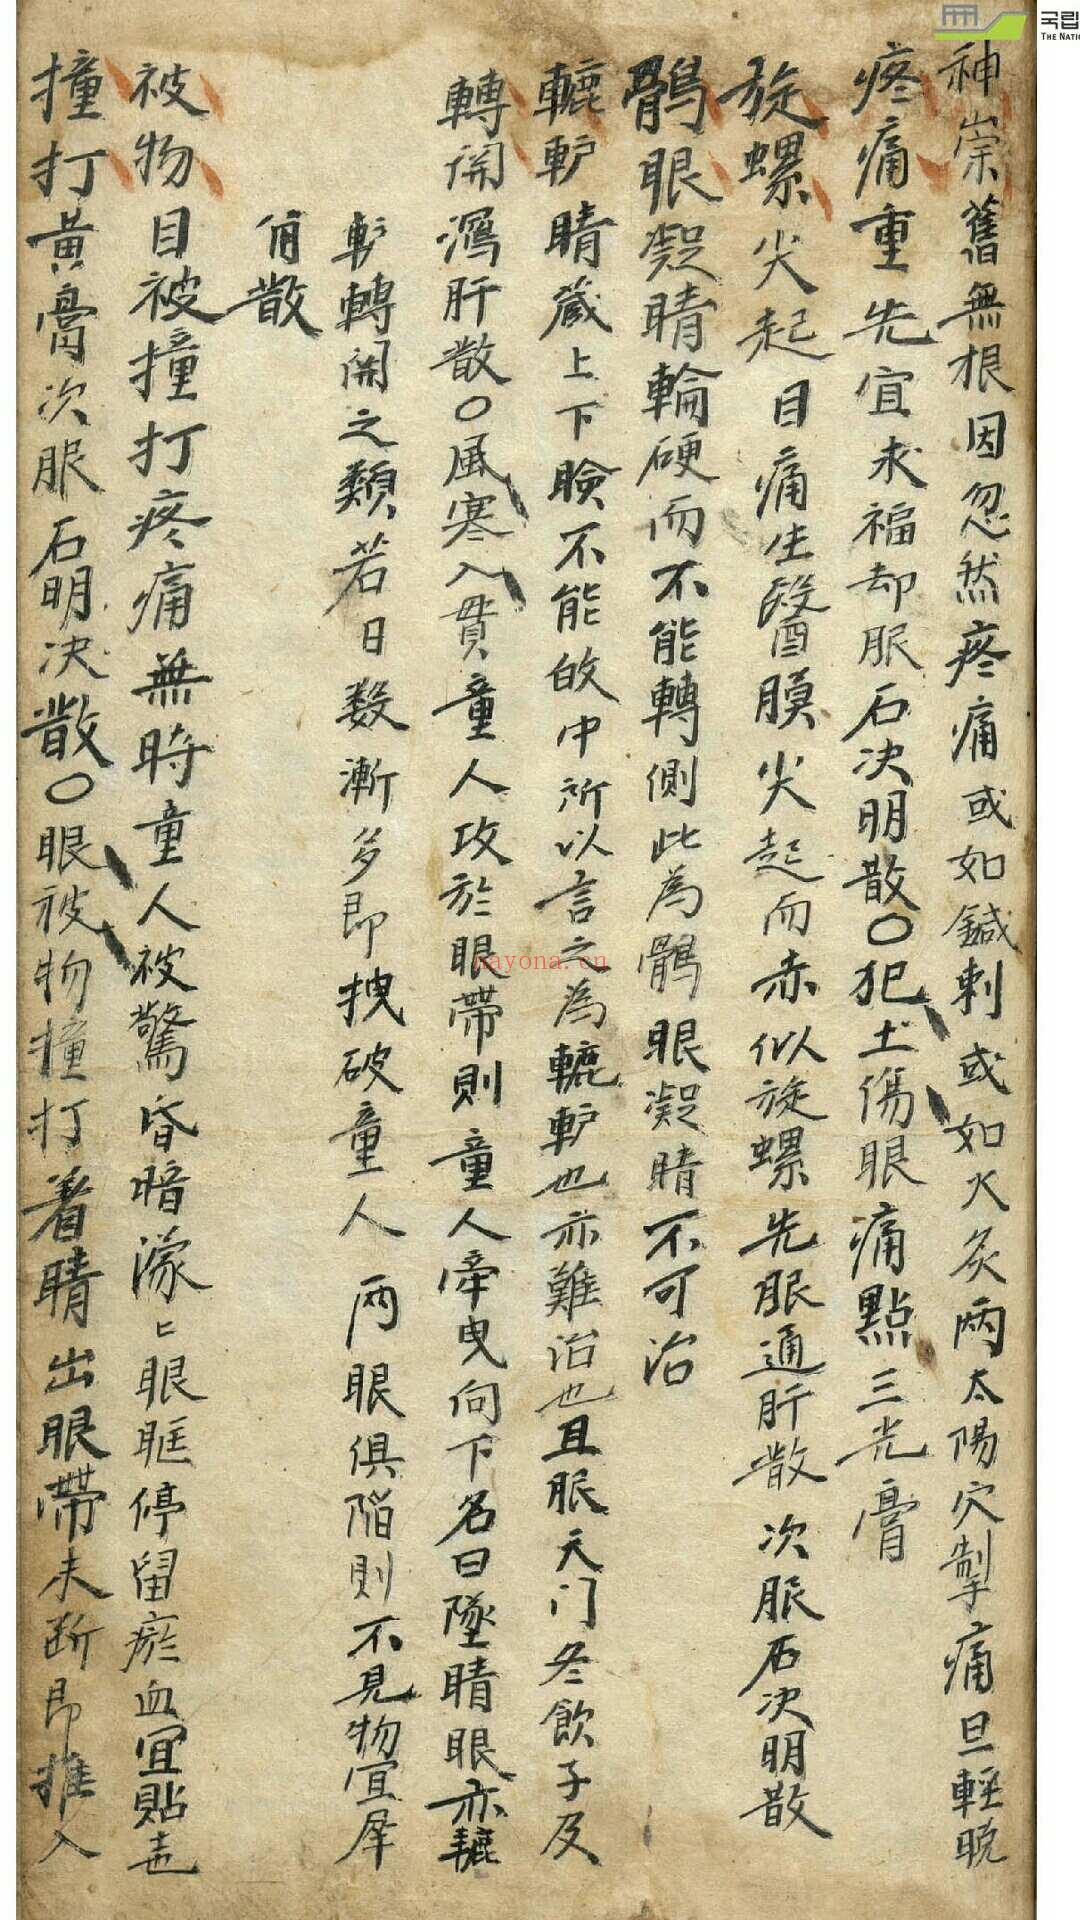 국립
THE NATI
神祟舊無根因忽然疼痛或如鍼刺或如火灸兩太陽穴掣痛旦輕晩
疼痛重先宜求福却服石决明散〇犯土傷眼痛點三光膏
旋螺尖起目痛生瞖膜尖起而赤似旋螺先服通肝散次服石决明散
鶻眼凝睛輪硬而不能轉側此為鶻眼凝睛不可治
轆轳睛藏上下瞼不能於中所以言之為轆轳也亦難治也且服天门冬飮子及
轉開瀉肝散〇風寒入貫童人攻於眼帶則童人牽曳向下名曰墜睛眼亦轆
轳轉開之類若日数漸多即拽破童人兩眼俱陷則不見物宜犀
角散
被物目被撞打疼痛無時童人被驚昏暗濛〻眼眶停留瘀血宜貼
撞打黃膏次服石明决散〇眼被物撞打着睛出眼帶未断即推入
nayona.cn